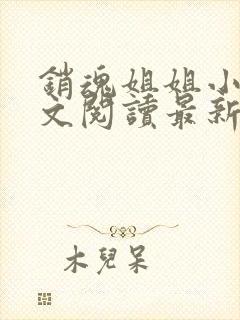 銷魂姐姐小
文閱讀最新
木兒呆